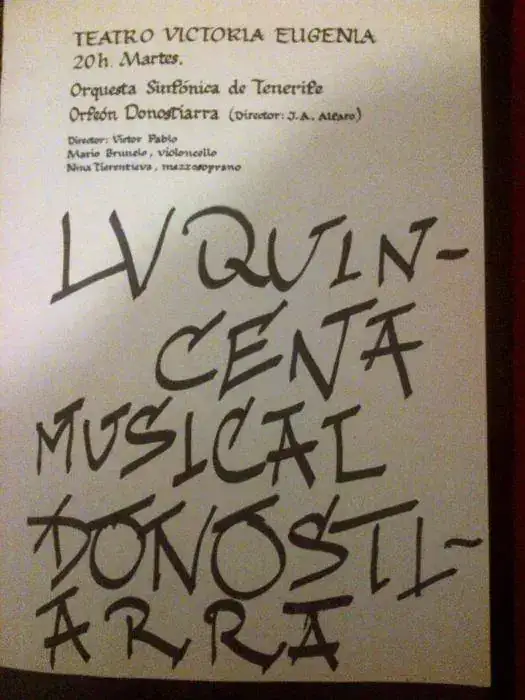 TEATRO VICTORIA EUGENIA
20h. Martes.
Orquesta Sinfónica de Tenerife
Orfeón Donostiarra (Director: J.A. Alfaro)
Director: Victor Pablo
Mario Brunelo, violoncello
Nina Tierentieva, mezzosoprano
LV QUIN-
CENA
MUSICAL
DONOSTI-
ARRA